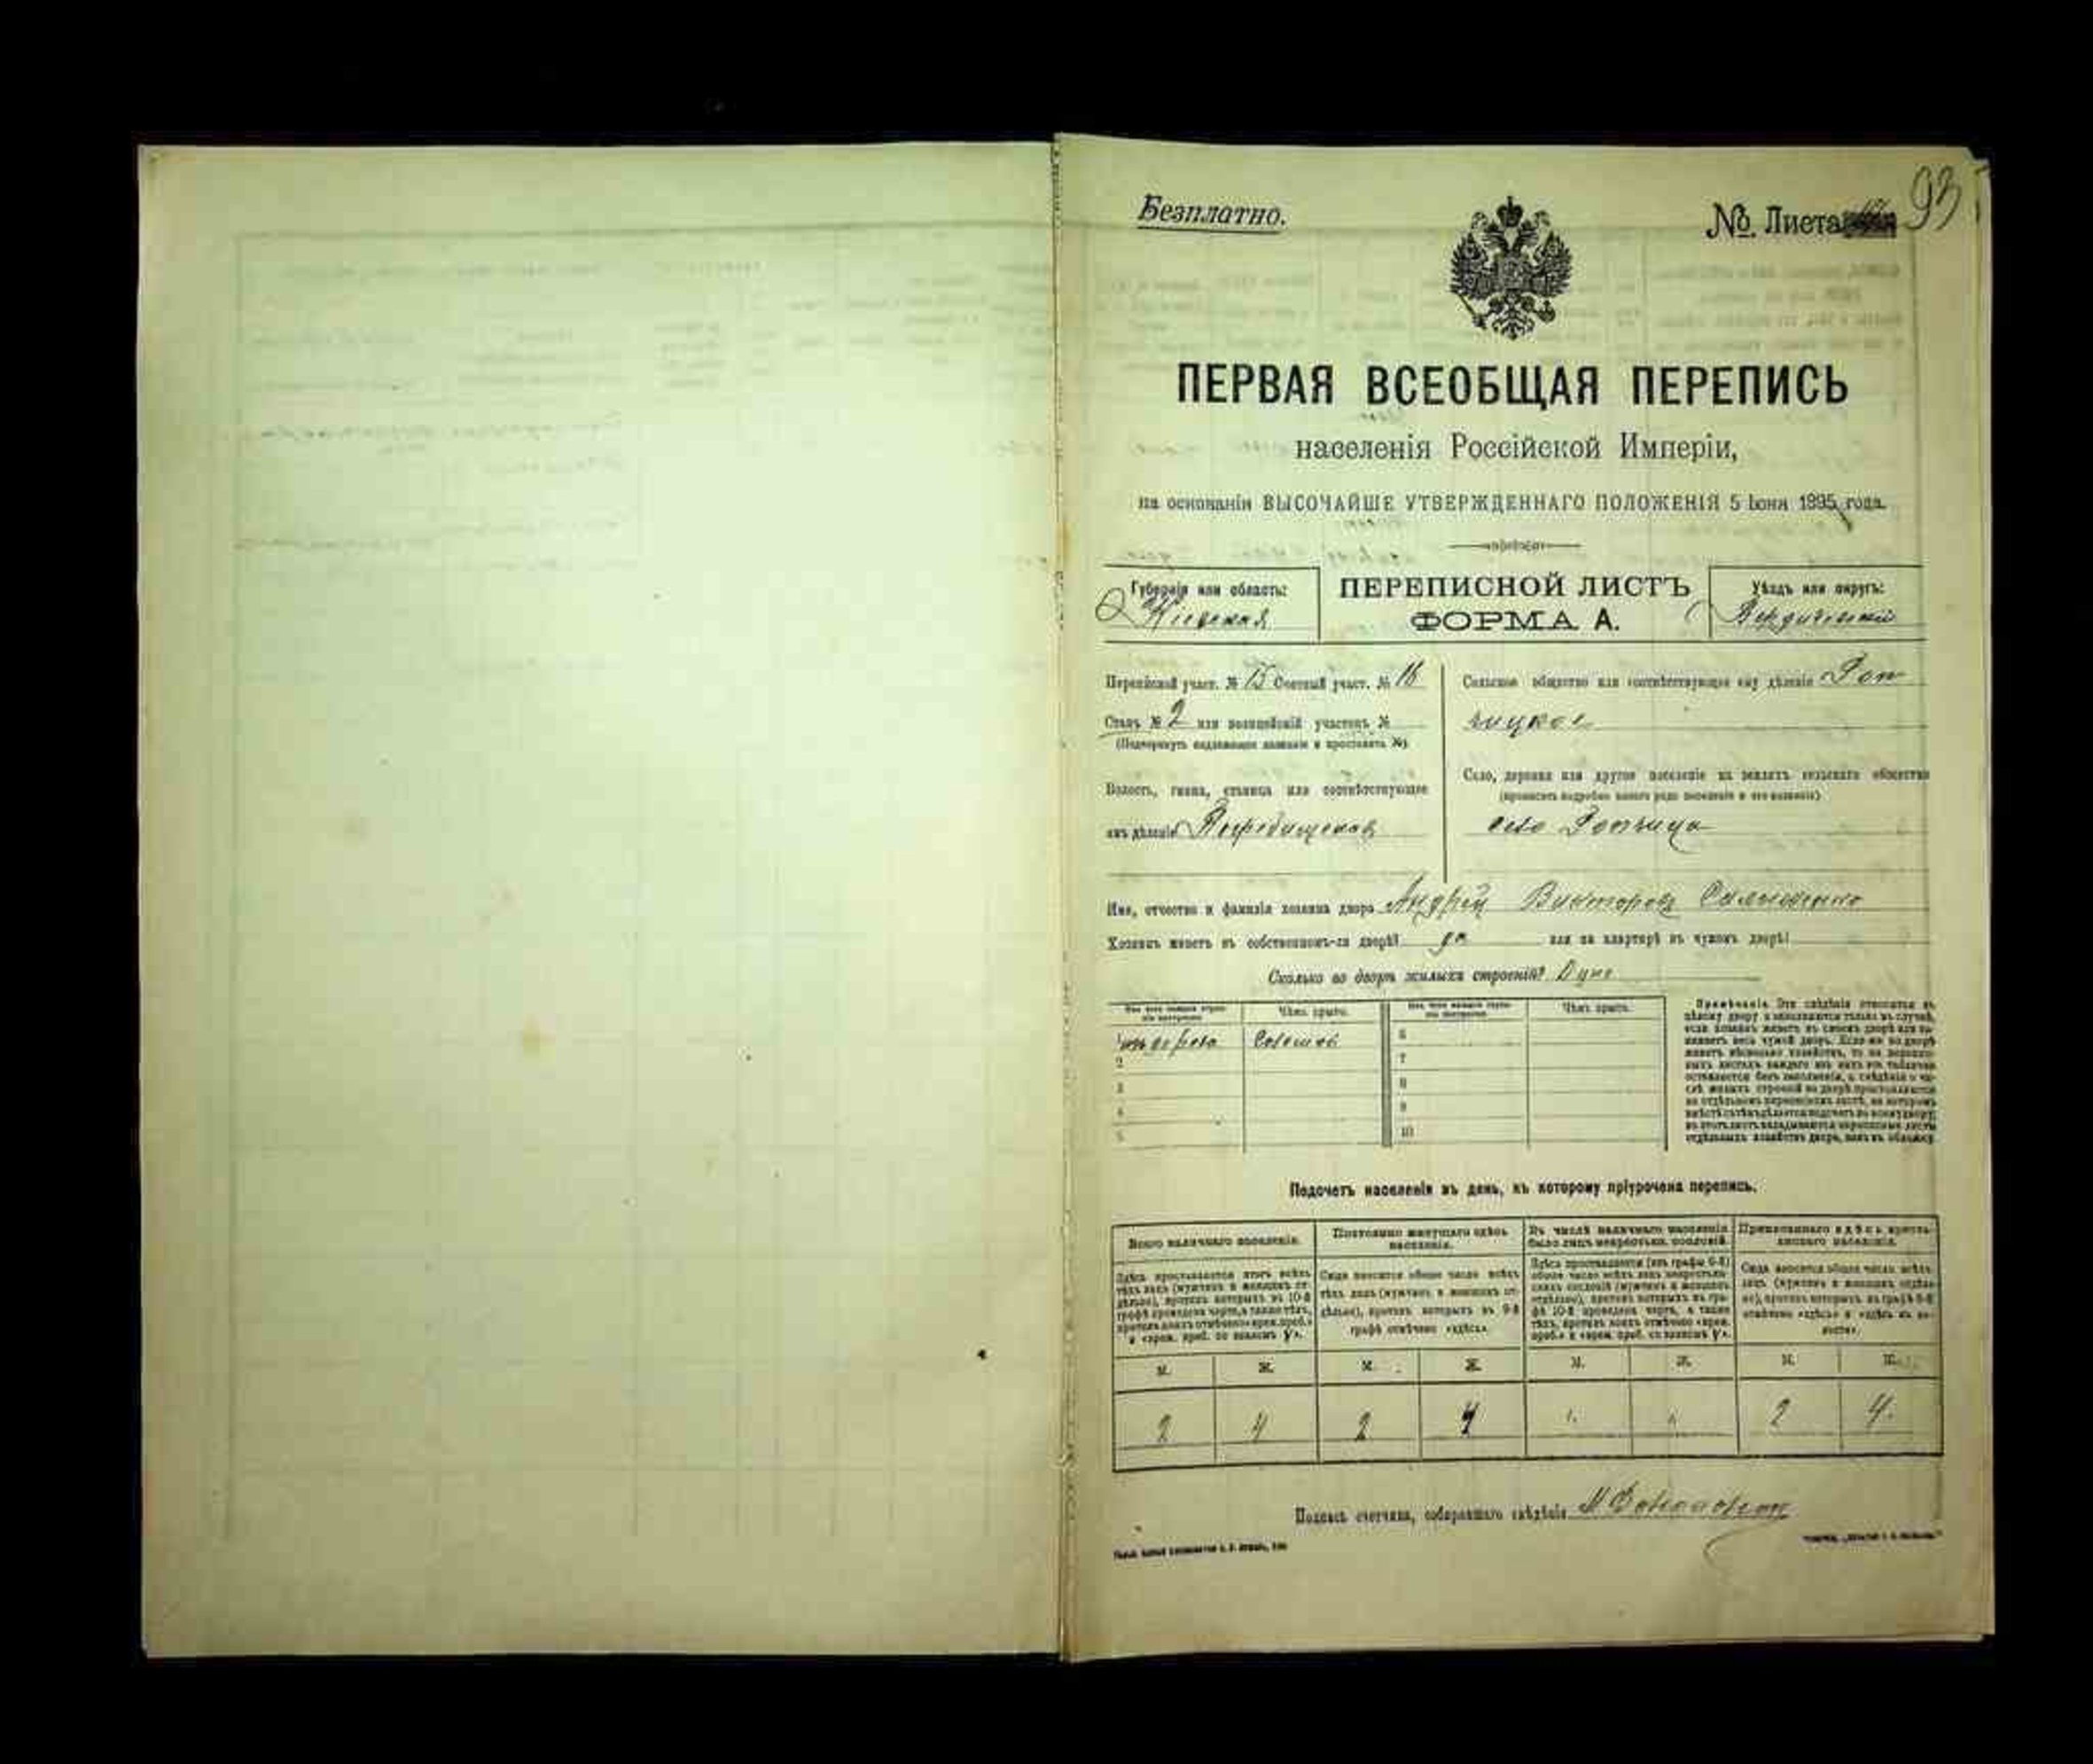 Безплатно.
№. Листа 93
ПЕРВАЯ ВСЕОБЩАЯ ПЕРЕПИСЬ
населенія Россійской Имперіи,
на основаніи ВЫСОЧАЙШЕ УТВЕРЖДЕННАГО ПОЛОЖЕНІЯ 5 Іюня 1895 года.
Губернія или область:
Кіевская
ПЕРЕПИСНОЙ ЛИСТЪ
ФОРМА А.
Уѣздъ или округъ:
Бердичевскій
Переписной участ. № 15 Счетный участ. № 18
Станъ № 2 или полицейскій участокъ №
(Подчеркнуть надлежащее названіе и проставить №).
Волость, гмина, станица или соотвѣтствующее
имъ дѣленіе Погребищенская
Сельское общество или соотвѣтствующее ему дѣленіе
Село, деревня или другое поселеніе на земляхъ сельскаго общества
(прописать подробно какого рода поселеніе и его названіе)
село
Имя, отчество и фамилія хозяина двора Андрей Викторовъ
Хозяинъ живетъ въ собственномъ-ли дворѣ? да или на квартирѣ въ чужомъ дворѣ?
Сколько во дворѣ жилыхъ строеній? Одно
Изъ чего каждое строеніе построено.
Чѣмъ крыто.
Изъ чего каждое строеніе построено.
Чѣмъ крыто.
изъ дерева Соломой 6
2 7
3 8
4 9
5 10
Примѣчаніе. Эти свѣдѣнія относятся къ
цѣлому двору и заполняются только въ случаѣ,
если хозяинъ живетъ въ своемъ дворѣ или занимаетъ весь чужой дворъ. Если же во дворѣ
живетъ нѣсколько хозяйствъ, то на переписныхъ листахъ каждаго изъ нихъ эта табличка
оставляется безъ заполненія, а свѣдѣнія о числѣ жилыхъ строеній во дворѣ проставляются
на отдѣльномъ переписномъ листѣ, на которомъ
Подсчетъ населенія въ день, къ которому пріурочена перепись.
Всего наличнаго населенія.
Здѣсь проставляется итогъ всѣхъ
тѣхъ лицъ (мужчинъ и женщинъ отдѣльно), противъ которыхъ въ 10-й
графѣ проведена черта, а также тѣхъ,
противъ коихъ отмѣчено «врем. преб.»
и «врем. преб. со знакомъ V».
Постоянно живущаго здѣсь
населенія.
Сюда вносится общее число всѣхъ
тѣхъ лицъ (мужчинъ и женщинъ отдѣльно), противъ которыхъ въ 9-й
графѣ отмѣчено «здѣсь».
Въ числѣ наличнаго населенія
было лицъ некрестьян. сословій.
Здѣсь проставляется (изъ графы 6-й)
общее число всѣхъ лицъ некрестьянскихъ сословій (мужчинъ и женщинъ
отдѣльно), противъ которыхъ въ графѣ 10-й проведена черта, а также
тѣхъ, противъ коихъ отмѣчено «врем.
преб.» и «врем. преб. со знакомъ V».
Приписаннаго здѣсь крестьянскаго населенія.
Сюда вносится общее число всѣхъ
лицъ (мужчинъ и женщинъ отдѣльно), противъ которыхъ въ графѣ 8-й
отмѣчено «здѣсь» и «здѣсь въ волости».
М. Ж. М. Ж. М. Ж. М. Ж.
2 4 2 4 2 4
Подпись счетчика, собиравшаго свѣдѣнія